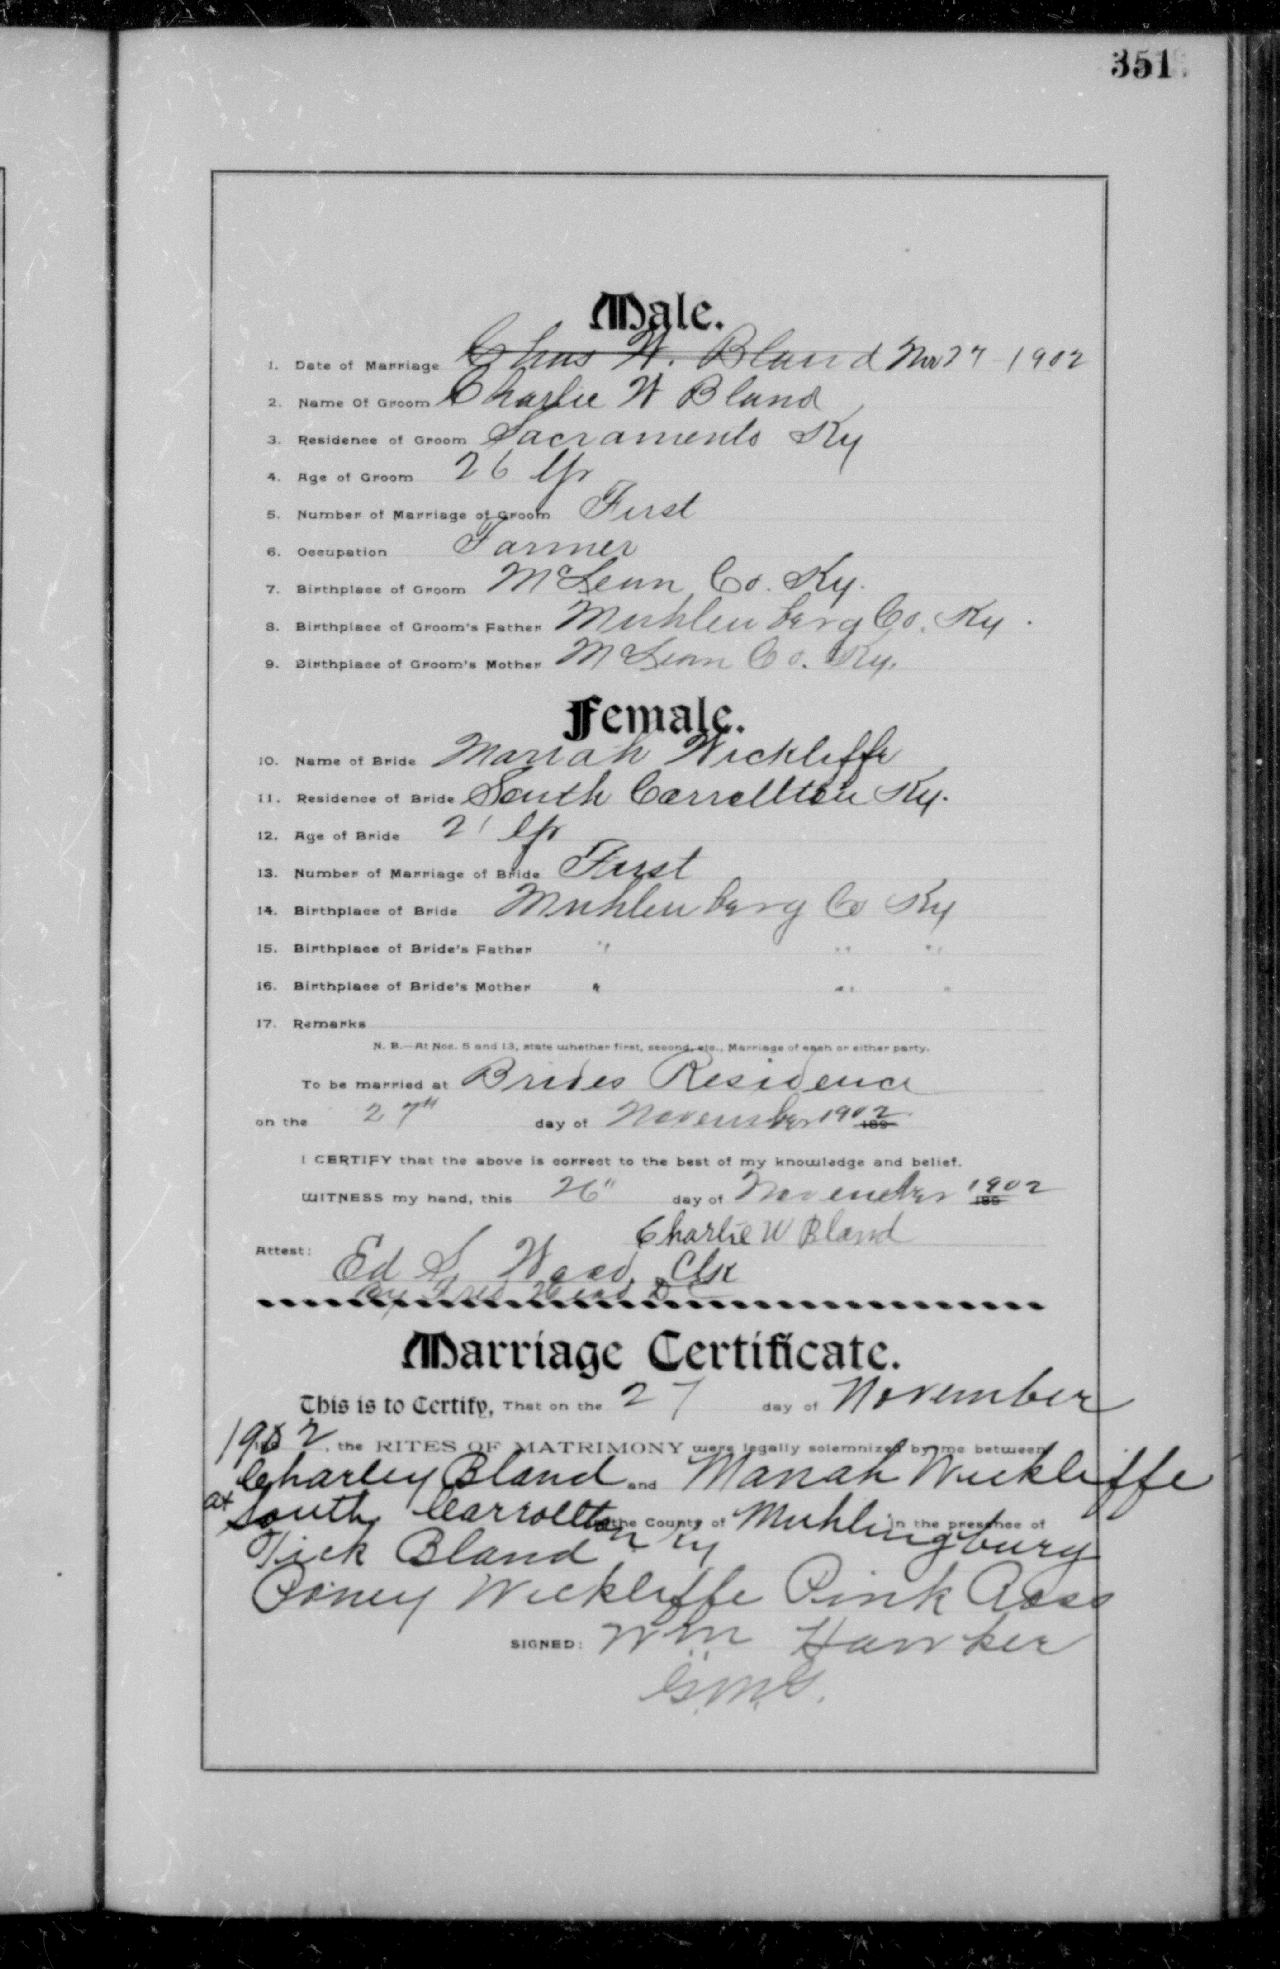 351
Male.
1. Date of Marriage Chas W. Bland Nov 27 - 1902
2. Name Of Groom Charlie W Bland
3. Residence of Groom Sacramento Ky
4. Age of Groom 26 yr
5. Number of Marriage of Groom First
6. Occupation Farmer
7. Birthplace of Groom McLean Co. Ky.
8. Birthplace of Groom's Father Muhlenberg Co. Ky.
9. Birthplace of Groom's Mother McLean Co. Ky.
Female.
10. Name of Bride Mariah Wickliffe
11. Residence of Bride South Carrollton Ky.
12. Age of Bride 21 yr
13. Number of Marriage of Bride First
14. Birthplace of Bride Muhlenberg Co Ky
15. Birthplace of Bride's Father " " "
16. Birthplace of Bride's Mother " " "
17. Remarks
N. B.—At Nos. 5 and 13, state whether first, second, etc., Marriage of each or either party.
To be married at Brides Residence
on the 27th day of November 1902 189
I CERTIFY that the above is correct to the best of my knowledge and belief.
WITNESS my hand, this 26" day of November 1902 189
Charlie W Bland
Attest: Ed S. Wood, Clk
By Fred D C
Marriage Certificate.
This is to Certify, That on the 27 day of November
1902, the RITES OF MATRIMONY were legally solemnized by me between
Charley Bland and Mariah Wickliffe
at South Carrollton Ky the County of Muhlingburg in the presence of
Tick Bland
Poney Wickliffe Pink Ross
SIGNED: Wm Hawker
G.M.G.